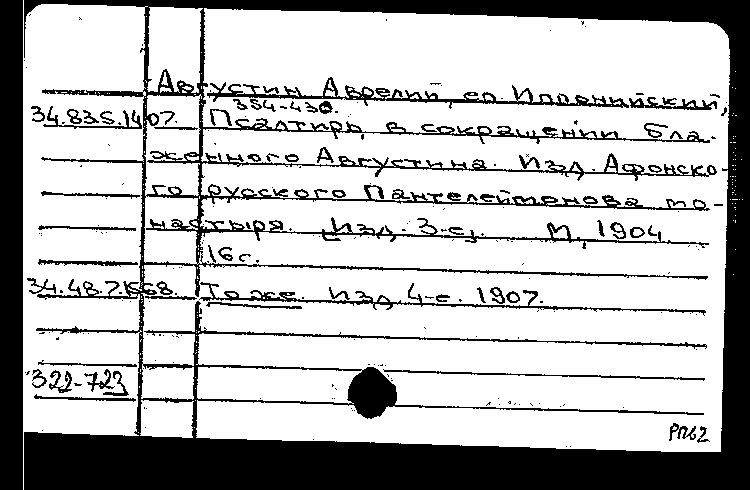 Августин Аврелий, еп. Иппонийский,
354-430.
34.83.5.1407. Псалтирь в сокращении бла-
женного Августина. Изд. Афонско-
го русского Пантелеймонова мо-
настыря. [Изд. 3-е]. М., 1904
16 с.
34.48.7.1568. То же. Изд. 4-е. 1907.
322-723
РПБ2